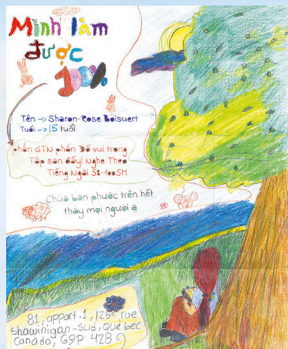 Mình làm
được
Tên -> Sharon-Rose Boisvert
Tuổi -> 15 tuổi
phần
vui trong
Tập san đấy! Nghe Theo
Tiếng Ngài
Chúa ban phước trên hết
thảy mọi người ạ
81, appart.1, 125e rue
shawinigan-sud, Québec
Canada, G9P 4Z8